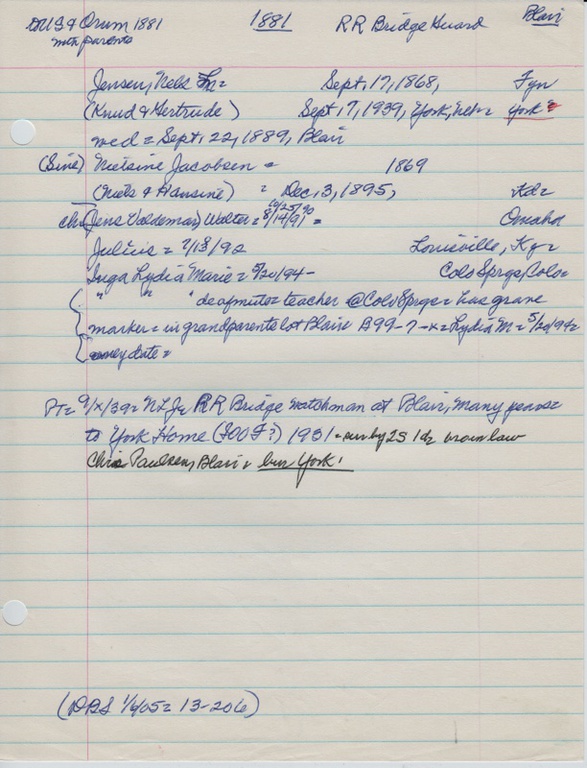 to US & Orum 1881 1881 RR Bridge Guard Blair
with parents
Jensen, Nels = Sept. 17, 1868, Fyn
(Knud & Gertrude) Sept. 7, 1939, York, Neb = York =
med = Sept. 22, 1889, Blair
(Sine) Nielsine Jacobsen = 1869
(Niels & Hansine) = Dec. 3, 1895, Nd =
10/25/90
ch (Jens Valdemar) Walter = 8/14/91 = Omaha
Julius = 7/13/92 Louisville, Ky =
Inga Lydia Marie = 5/20/94 - Colo Sprgs, Colo =
" " " deafmute = teacher @ Colo Sprgs = has grave
marker = in grandparents lot Blair B99-7-x = Lydia M = 5/20/94 =
only date =
PT = 9/x/39 = NLJ RR Bridge watchman at Blair, many years =
to York Home (IOOF?) 1931 - sur by 2S 1d brom law
Chris Paulsen, Blair & bur York.
(DBS 1/6/05 = 13-206)